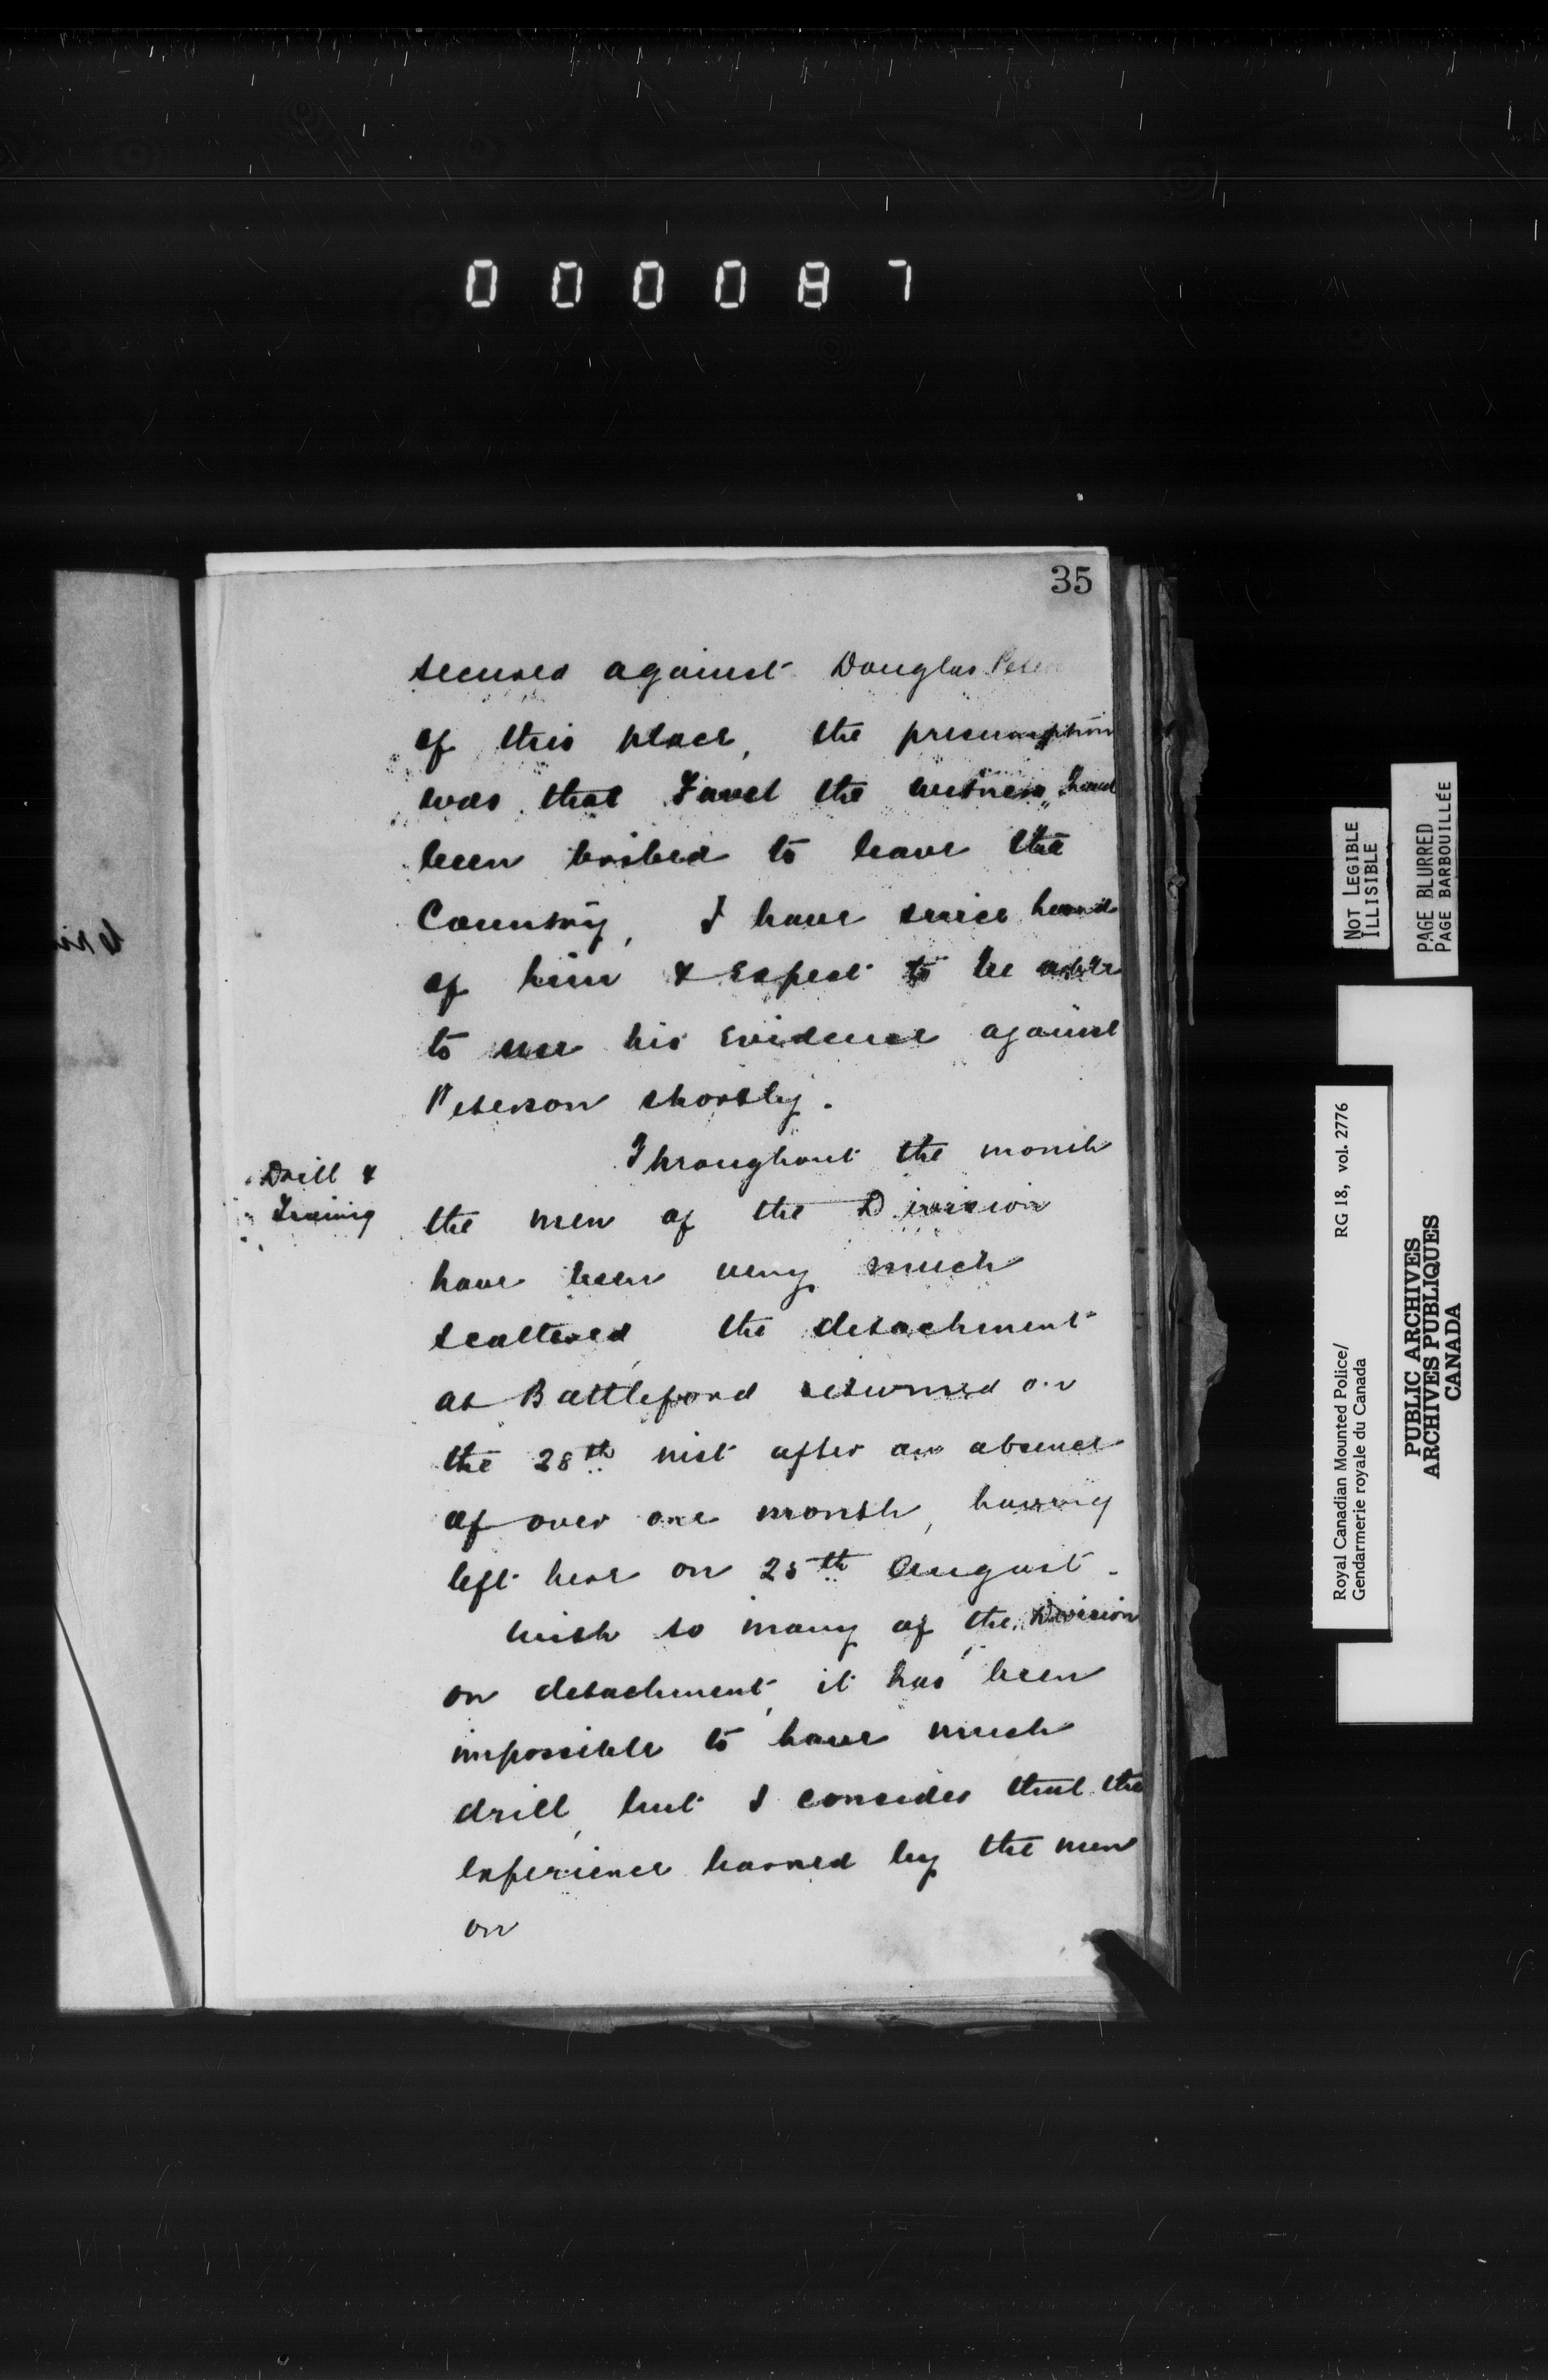 000087
35
secured against Douglas
of this place, the presumption
was that Favel the witness, had
been bribed to leave the
Country, I have since heard
of him & expect to be able
to use his evidence against
Peterson shortly.
Drill &
Training
Throughout the month
the men of the Division
have been very much
scattered, the detachment
at Battleford returned on
the 28th inst after an absence
of over one month, having
left here on 25th August.
With so many of the Division
on detachment, it has been
impossible to have much
drill, but I consider that the
experience learned by the men
on
NOT LEGIBLE
ILLISIBLE
PAGE BLURRED
PAGE BARBOUILLÉE
Royal Canadian Mounted Police/ RG 18, vol. 2776
Gendarmerie royale du Canada
PUBLIC ARCHIVES
ARCHIVES PUBLIQUES
CANADA